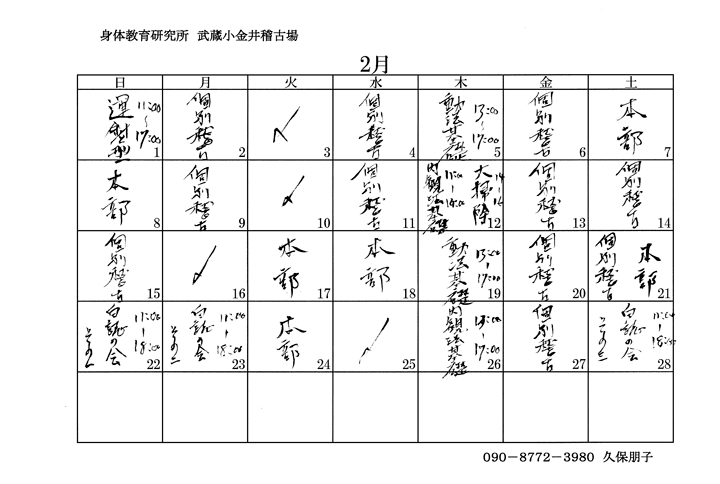 身体教育研究所 武蔵小金井稽古場
2月
日 月 火 水 木 金 土
11:00~17:00 1
個別稽古 2
〆 3
個別稽古 4
動法基礎 13:00~17:00 5
個別稽古 6
本部 7
本部 8
個別稽古 9
〆 10
個別稽古 11
内観法基礎 大掃除 12
個別稽古 13
個別稽古 14
個別稽古 15
〆 16
本部 17
本部 18
動法基礎 13:00~17:00 19
個別稽古 20
個別稽古 本部 21
の会 11:00~18:00 22
の会 11:00~18:00 23
本部 24
〆 25
内観法基礎 17:00 26
個別稽古 27
の会 11:00~18:00 28
090-8772-3980 久保朋子